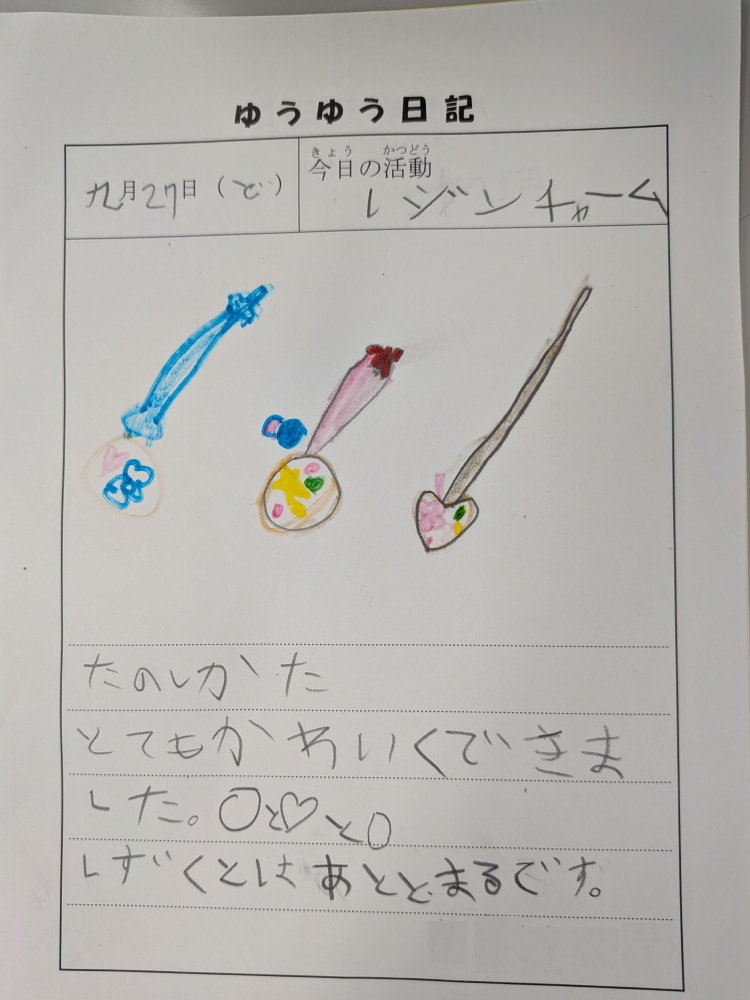 ゆうゆう日記
九月27日(ど)
きょう かつどう
今日の活動
レジンチャーム
たのしかた
とてもかわいくできま
した。○と♡と○
しずくとはあととまるです。